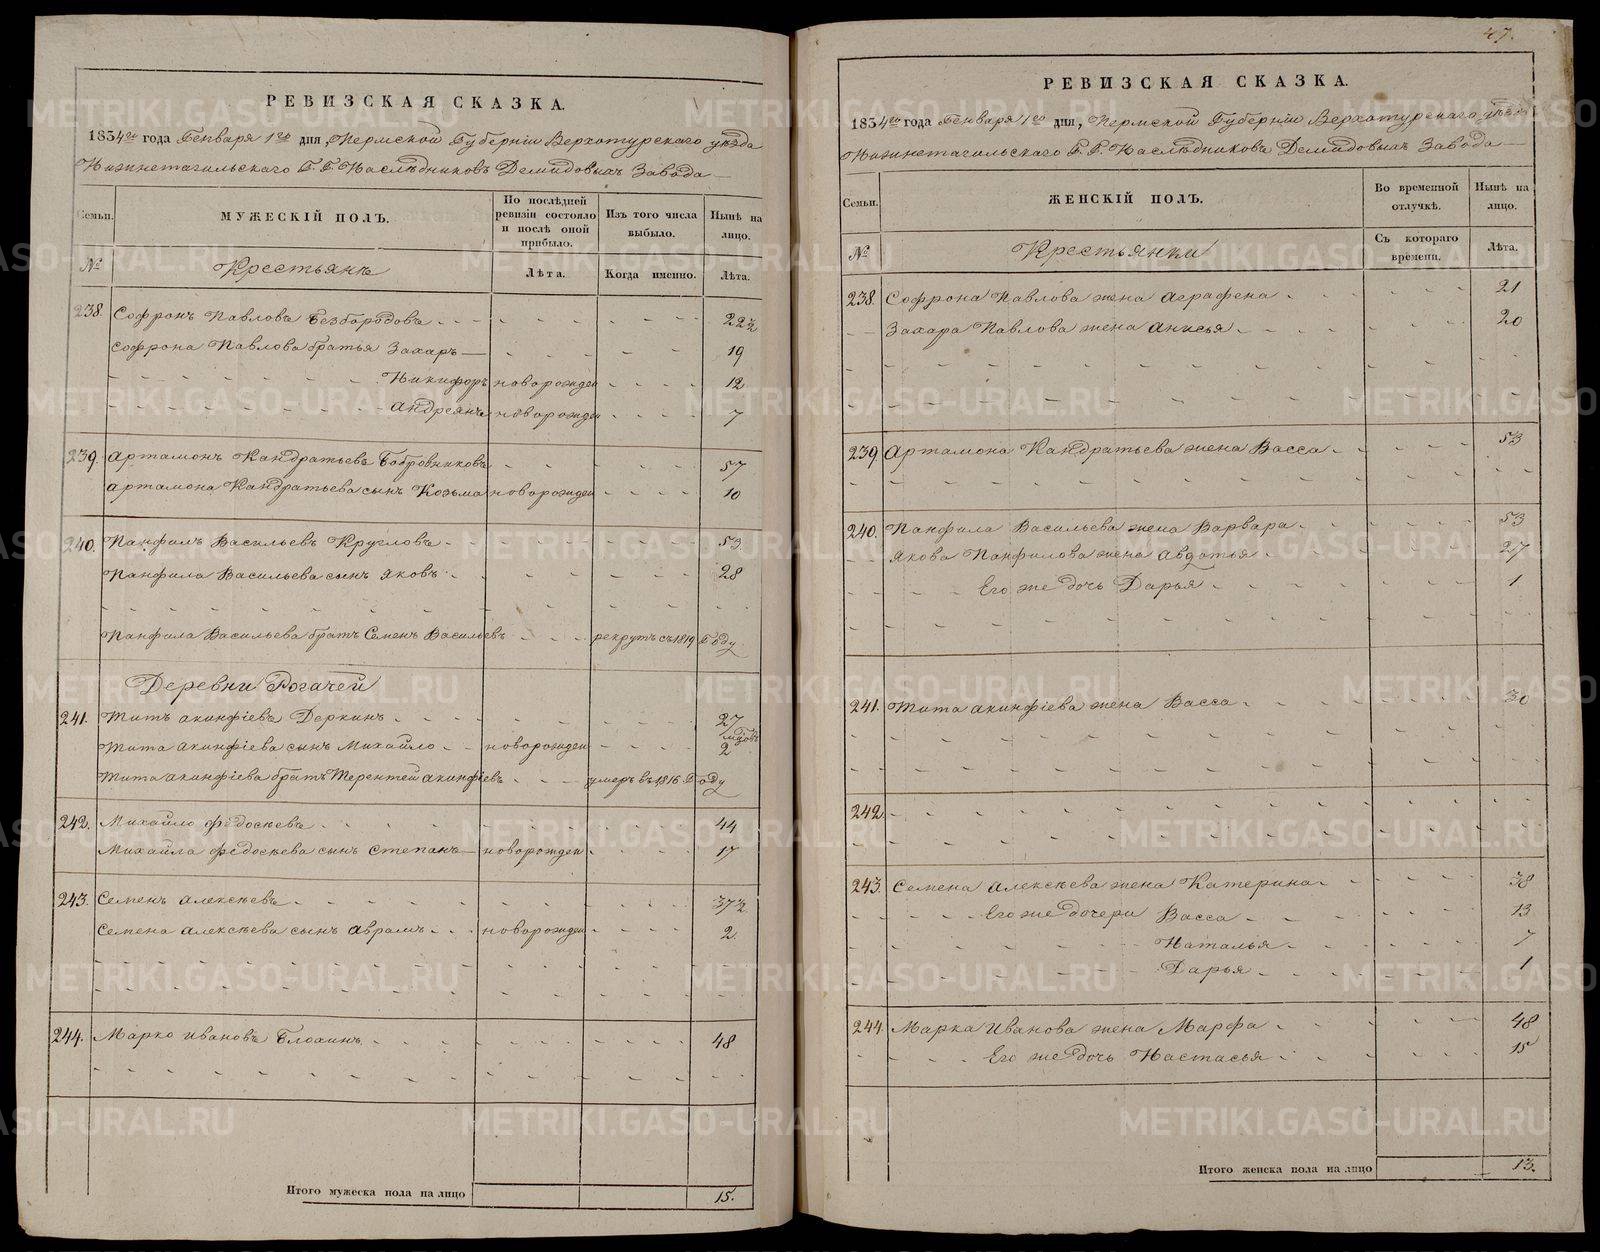 РЕВИЗСКАЯ СКАЗКА.
1834го года Генваря 1го дня, Пермской Губернiи Верхотурскаго уѣзда
Нижнетагильскаго Г. Г. Наслѣдниковъ Демидовыхъ Завода
Семьи.
МУЖЕСКІЙ ПОЛЪ.
По послѣдней ревизіи состояло и послѣ оной прибыло.
Изъ того числа выбыло.
Нынѣ на лицо.
№
Крестьянъ
Лѣта.
Когда именно.
Лѣта.
238. Софронъ Павловъ Безбородовъ 22½
Софрона Павлова братья Захаръ 19
Никифоръ новорожден 12
Андреянъ новорожден 7
239. Артамонъ Кандратьевъ Бобровниковъ 57
Артамона Кандратьева сынъ Козьма новорожден 10
240. Панфилъ Васильевъ Кругловъ 53
Панфила Васильева сынъ Яковъ 28
Панфила Васильева братъ Семенъ Васильевъ рекрутъ съ 1819 Году
Деревни Рогачей
241. Титъ Акинфіевъ Деркинъ 27
Тита Акинфіева сынъ Михайло новорожден 2
Тита Акинфіева братъ Терентей Акинфіевъ умеръ въ 1816 Году
242. Михайло Федосѣевъ 44
Михайла Федосѣева сынъ Степанъ новорожден 17
243. Семенъ Алексѣевъ 37½
Семена Алексѣева сынъ Аврамъ новорожден 2
244. Марко Ивановъ Блохинъ 48
Итого мужеска пола на лицо 15.
47.
РЕВИЗСКАЯ СКАЗКА.
1834го года Генваря 1го дня, Пермской Губернiи Верхотурскаго уѣзда
Нижнетагильскаго Г. Г. Наслѣдниковъ Демидовыхъ Завода
Семьи.
ЖЕНСКІЙ ПОЛЪ.
Во временной отлучкѣ.
Нынѣ на лицо.
№
Крестьянки
Съ котораго времени.
Лѣта.
238. Софрона Павлова жена Аграфена 21
Захара Павлова жена Анисья 20
239. Артамона Кандратьева жена Васса 53
240. Панфила Васильева жена Варвара 53
Якова Панфилова жена Авдотья 27
Его же дочь Дарья 1
241. Тита Акинфіева жена Васса 30
242.
243. Семена Алексѣева жена Катерина 38
Его же дочери Васса 13
Наталья 7
Дарья 1
244. Марка Иванова жена Марфа 48
Его же дочь Настасья 15
Итого женска пола на лицо 13.
METRIKI.GASO-URAL.RU